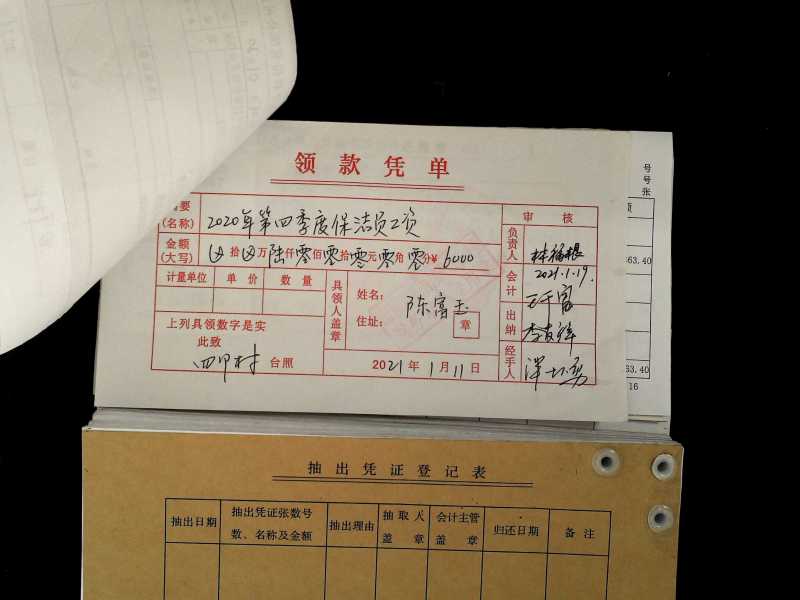 领款凭单
要
(名称) 2020年第四季度保洁员工资
审核
金额
(大写) 拾 万陆仟零佰零拾零元零角零分¥ 6000
负责人
2021.1.19.
计量单位 单价 数量
具领人盖章
姓名: 陈富玉
住址:
章
会计
出纳
上列具领数字是实
此致
四甲村 台照
2021年1月11日
经手人
号
号
张
63.40
63.40
16
抽出凭证登记表
抽出日期
抽出凭证张数号
数、名称及金额
抽出理由
抽取人
盖章
会计主管
盖章
归还日期
备注